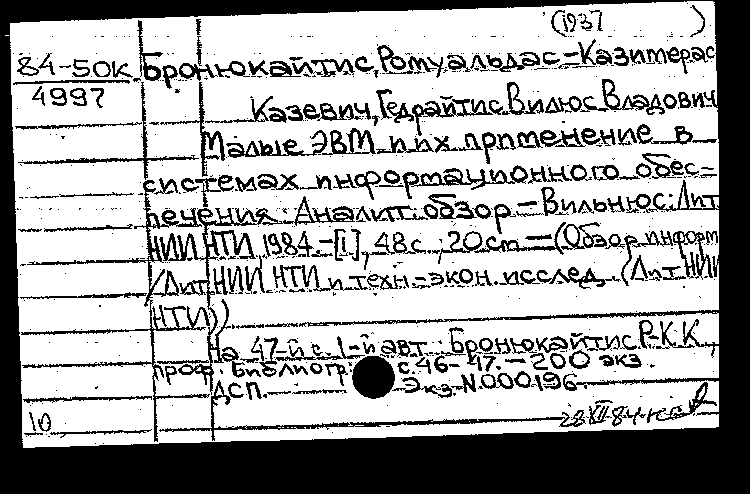 (1937 )
84-50К Бронюкайтис, Ромуальдас-Казимерас
4997
Казевич, Гедрайтис Вилюс Владович
Малые ЭВМ и их применение в
системах информационного обес-
печения. Аналит. обзор.-Вильнюс: Лит
НИИ НТИ, 1984.-[1], 48 с.; 20 см.-(Обзор. информ
/Лит НИИ НТИ и техн.-экон. исслед. (Лит НИИ
НТИ))
На 47-й с. 1-й авт.: Бронюкайтис Р-К.К.,
проф. Библиогр.: с.46-47.-200 экз.
ДСП. Экз.N.000196.
10. 28 XII 84